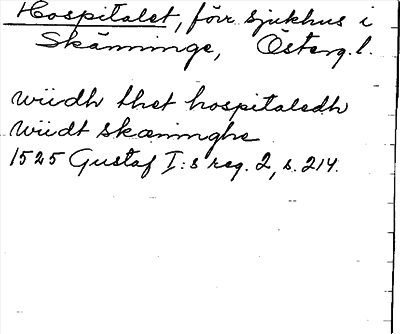 Hospitalet, förr sjukhus i
Skänninge, Österg.l.
wiidh thet hospitaledh
wiidt skæninghe
1525 Gustaf I:s reg. 2, s. 214.